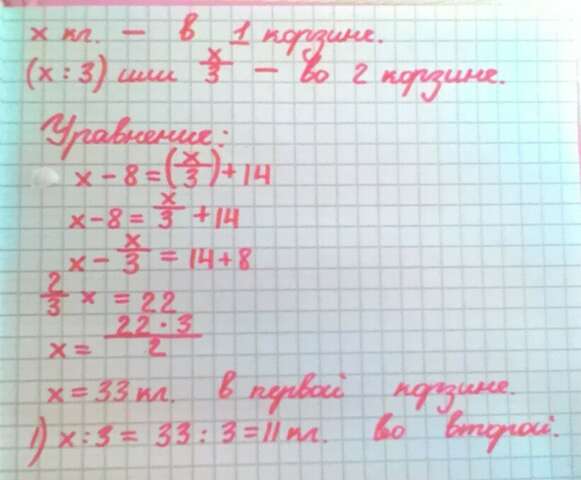 x кл. – в 1 корзине.
(x : 3) или x/3 – во 2 корзине.
Уравнение:
x - 8 = (x/3) + 14
x - 8 = x/3 + 14
x - x/3 = 14 + 8
2/3 x = 22
x = 22 · 3 / 2
x = 33 кл. в первой корзине.
1) x : 3 = 33 : 3 = 11 кл. во второй.